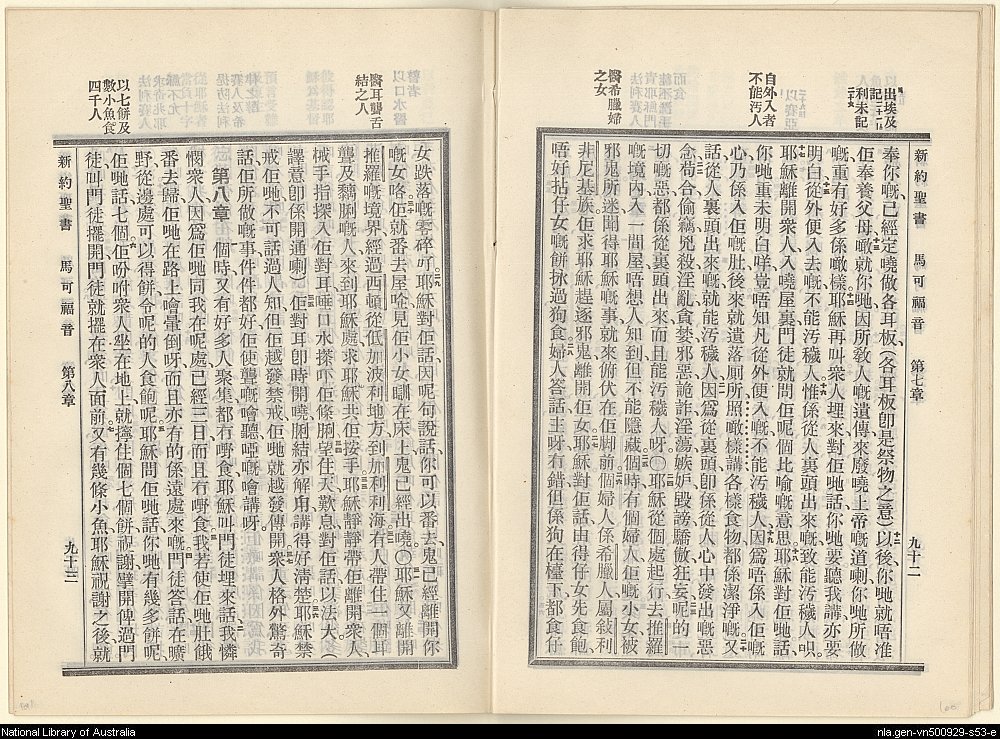 出埃及
記二十一
利未記
二十
自外入者
不能汚人
醫希臘婦
之女
新約聖書 馬可福音 第七章 九十二
奉你嘅、已經定嘵做各耳板、(各耳板卽是祭物之意)以後你哋就唔准
佢奉養父母、噉就你哋因所教人嘅遺傳、來廢嘵上帝嘅道喇、你哋所做
嘅、重有好多係噉樣。耶穌再叫衆人埋來、對佢哋話、你哋要聽我講、亦要
明白、從外便入去嘅不能汚穢人、惟係從人裏頭出來嘅、致能汚穢人呮。
耶穌離開衆人、入嘵屋裏、門徒就問佢呢個比喻嘅意思、耶穌對佢哋話、
你哋重未明白咩、豈唔知凡從外便入嘅、不能汚穢人、因爲唔係入佢嘅
心、乃係入佢嘅肚、後來就遺落厠所、照噉樣講、各樣食物都係潔淨嘅、又
話、從人裏頭出來嘅、就能汚穢人、因爲從裏頭、卽係從人心中、發出嘅惡
念、苟合、偷竊、兇殺、淫亂、貪婪、邪惡、詭詐、淫蕩、嫉妒、毀謗、驕傲、狂妄、呢的一
切嘅惡、都係從裏頭出來、而且能汚穢人呀。〇耶穌從個處起行、去推羅
嘅境內、入一間屋、唔想人知到、但不能隱藏、個時有個婦人、佢嘅小女、被
邪鬼所迷、聞得耶穌嘅事、就來俯伏在佢脚前、個婦人係希臘人、屬敍利
非尼基族、佢求耶穌趕逐邪鬼離開佢女、耶穌對佢話、由得仔女先食飽、
唔好拈仔女嘅餅、𢱕過狗食、婦人答話、主呀、冇錯、但係狗在檯下、都食仔
醫耳聾舌
結之人
以七餅及
數小魚食
四千人
女跌落嘅零碎吖、耶穌對佢話、因呢句說話、你可以番去、鬼已經離開你
嘅女咯、佢就番去屋𠱁、見佢小女瞓在床上、鬼已經出嘵。〇耶穌又離開
推羅嘅境界、經過西頓、從低加波利地方、到加利利海、有人帶住一個耳
聾及黐脷嘅人、來到耶穌處、求耶穌共佢按手、耶穌靜靜帶佢離開衆人、
械手指探入佢對耳、唾口水搽吓佢條脷、望住天歎息、對佢話、以法大、(
譯意卽係開通喇)佢對耳卽時開嘵、脷結亦解甪、講得好清楚、耶穌禁
戒佢哋不可話過人知、但佢越發禁戒、佢哋就越發傳開、衆人格外驚奇
話、佢所做嘅事、件件都好、佢使聾嘅噲聽、啞嘅噲講呀。
第八章 個時又有好多人聚集、都冇嘢食、耶穌叫門徒埋來話、我憐
憫衆人、因爲佢哋同我在呢處已經三日、而且冇嘢食、我若使佢哋肚餓
番去歸、佢哋在路上噲暈倒呀、而且亦有的係遠處來嘅、門徒答話、在曠
野從邊處可以得餅、令呢的人食飽呢、耶穌問佢哋話、你哋有幾多餅呢、
佢哋話、七個、佢吩咐衆人坐在地上、就擰住個七個餅、祝謝擘開、俾過門
徒、叫門徒擺開、門徒就擺在衆人面前、又有幾條小魚、耶穌祝謝之後、就
新約聖書 馬可福音 第八章 九十三
National Library of Australia
nla.gen-vn500929-s53-e